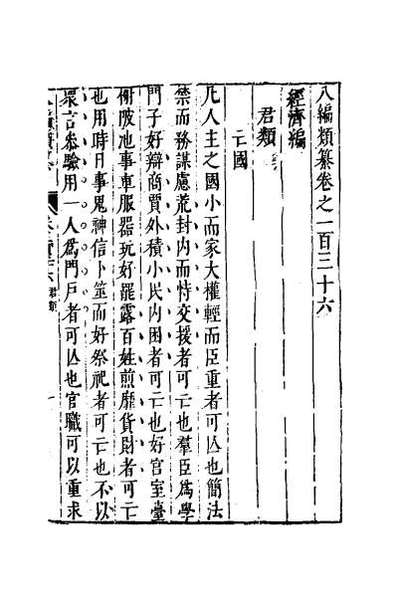 八編類纂卷之一百三十六
經濟編
君類
亡國
凡人主之國小而家大權輕而臣重者可亾也簡法
禁而務謀慮荒封内而恃交援者可亡也羣臣爲學
門子好辯商賈外積小民内困者可亡也好宮室臺
榭陂池事車服器玩好罷露百姓煎靡貨財者可亡
也用時日事鬼神信卜筮而好祭祀者可亡也不以
衆言參驗用一人爲門戶者可亾也官職可以重求
君類